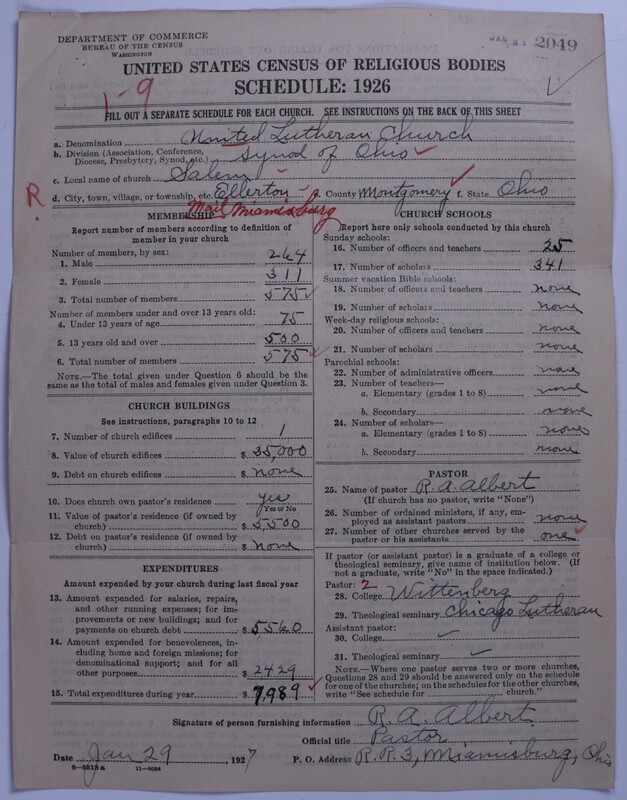 DEPARTMENT OF COMMERCE
BUREAU OF THE CENSUS
WASHINGTON
JAN 31 2049
UNITED STATES CENSUS OF RELIGIOUS BODIES
SCHEDULE: 1926
1-9
FILL OUT A SEPARATE SCHEDULE FOR EACH CHURCH. SEE INSTRUCTIONS ON THE BACK OF THIS SHEET
a. Denomination United Lutheran Church
b. Division (Association, Conference, Diocese, Presbytery, Synod, etc.) Synod of Ohio
c. Local name of church Salem
R d. City, town, village, or township, etc. Ellerton e. County Montgomery f. State Ohio
Mail Miamisburg
MEMBERSHIP
Report number of members according to definition of
member in your church
Number of members, by sex:
1. Male 264
2. Female 311
3. Total number of members 575
Number of members under and over 13 years old:
4. Under 13 years of age 75
5. 13 years old and over 500
6. Total number of members 575
NOTE.—The total given under Question 6 should be
same as the total of males and females given under Question 3.
CHURCH BUILDINGS
See instructions, paragraphs 10 to 12
7. Number of church edifices 1
8. Value of church edifices $ 35,000
9. Debt on church edifices $ none
10. Does church own pastor's residence yes
Yes or No
11. Value of pastor's residence (if owned by
church) $ 5,500
12. Debt on pastor's residence (if owned by
church) $ none
EXPENDITURES
Amount expended by your church during last fiscal year
13. Amount expended for salaries, repairs,
and other running expenses; for im-
provements or new buildings; and for
payments on church debt $ 5560
14. Amount expended for benevolences, in-
cluding home and foreign missions; for
denominational support; and for all
other purposes $ 2429
15. Total expenditures during year $ 7,989
CHURCH SCHOOLS
Report here only schools conducted by this church
Sunday schools:
16. Number of officers and teachers 25
17. Number of scholars 341
Summer vacation Bible schools:
18. Number of officers and teachers none
19. Number of scholars none
Week-day religious schools:
20. Number of officers and teachers none
21. Number of scholars none
Parochial schools:
22. Number of administrative officers none
23. Number of teachers—
a. Elementary (grades 1 to 8) none
b. Secondary none
24. Number of scholars—
a. Elementary (grades 1 to 8) none
b. Secondary none
PASTOR
25. Name of pastor R. A. Albert
(If church has no pastor, write "None")
26. Number of ordained ministers, if any, em-
ployed as assistant pastors none
27. Number of other churches served by the
pastor or his assistants one
If pastor (or assistant pastor) is a graduate of a college or
theological seminary, give name of institution below. (If
not a graduate, write "No" in the space indicated.)
Pastor: 2
28. College Wittenberg
29. Theological seminary Chicago Lutheran
Assistant pastor:
30. College
31. Theological seminary
NOTE.—Where one pastor serves two or more churches,
Questions 28 and 29 should be answered only on the schedule
for one of the churches; on the schedules for the other churches,
write "See schedule for church."
Signature of person furnishing information R. A. Albert
Official title Pastor
Date Jan 29, 1927 P. O. Address R. R. 3, Miamisburg, Ohio
8-5518a 11-9084